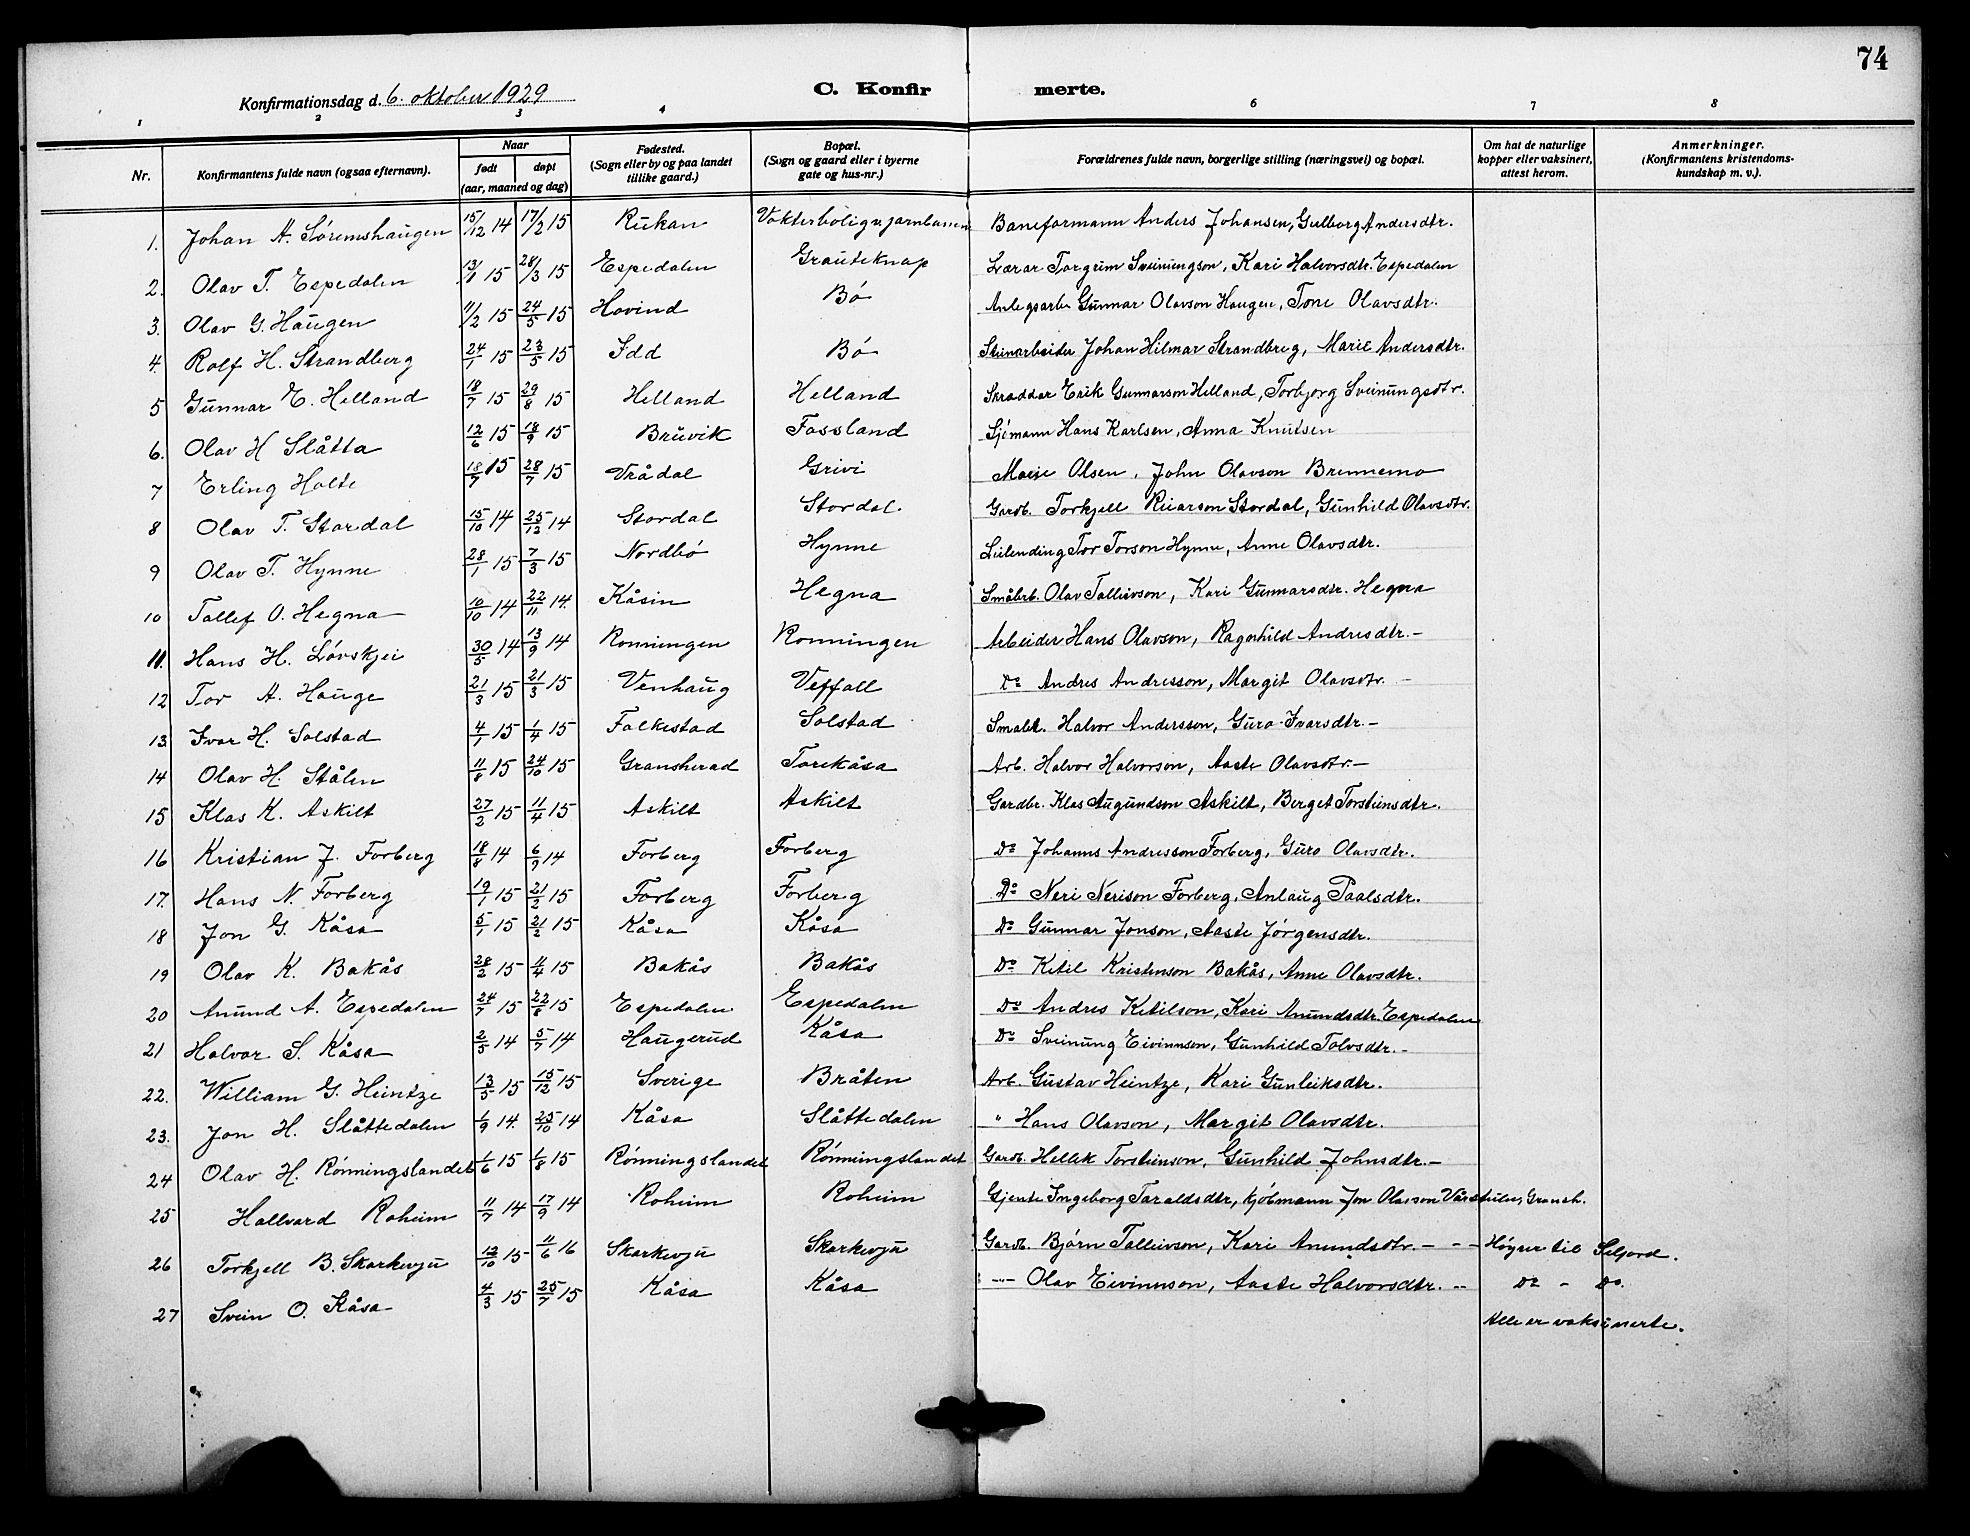 74
Konfirmationsdag d. 6. oktober 1929
C. Konfirmerte.
1 2 3 4 6 7 8
Nr. Konfirmantens fulde navn (ogsaa efternavn). Naar født døpt (aar, maaned og dag) Fødested. (Sogn eller by og paa landet tillike gaard.) Bopæl. (Sogn og gaard eller i byerne gate og hus-nr.) Forældrenes fulde navn, borgerlige stilling (næringsvei) og bopæl. Om hat de naturlige kopper eller vaksinert, attest herom. Anmerkninger. (Konfirmantens kristendomskundskap m. v.).
1. Johan A. Søremshaugen 15/12 14 17/2 15 Rukan Vokterbolig v jarnbanen Baneformann Anders Johansen, Gulborg Andersdtr.
2. Olav T. Espedalen 13/1 15 28/3 15 Espedalen Grauteknap Lærar Torgrim Sveinungson, Kari Halvorsdtr. Espedalen
3. Olav G. Haugen 11/2 15 24/5 15 Hovind Bø Anlegsarb. Gunnar Olavson Haugen, Tone Olavsdtr.
4. Rolf H. Strandberg 24/1 15 23/5 15 Idd Bø Steinarbeider Johan Hilmar Strandbreg, Marie Andersdtr.
5 Gunnar E. Helland 18/7 15 29/8 15 Helland Helland Skraddar Erik Gunnarson Helland, Torbjorg Sveinungsdtr.
6. Olav H Slåtta 12/6 15 18/9 15 Bruvik Fossland Sjømann Hans Karlsen, Anna Knutsen
7 Erling Holte 18/7 15 28/7 15 Vrådal Grivi Marie Olsen, John Olavson Brennemo
8 Olav T. Stordal 15/10 14 25/12 14 Stordal Stordal. Gardb. Torkjell Ruarson Stordal, Gunhild Olavsdtr.
9 Olav T. Hynne 28/1 15 7/3 15 Nordbø Hynne Leilending Tor Torson Hynne, Anne Olavsdtr.
10 Tallef O. Hegna 10/10 14 22/11 14. Kåsin Hegna Småbrb. Olav Tallivson, Kari Gunnarsdtr. Hegna
11. Hans H. Løvskjei 30/5 14 13/9 14 Ronningen Ronningen Arbeider Hans Olavson, Ragnhild Andresdtr. -
12 Tor A. Hauge 21/3 15 21/3 15 Venhaug Veffall Do Andres Andresson, Margit Olavsdtr. -
13. Ivar H. Solstad 4/1 15 1/4 15 Folkestad Solstad Smabr. Halvor Andersson, Guro Ivarsdtr. -
14 Olav H. Stålen 11/8 15 24/10 15 Gransherad Torekåsa Arb. Halvor Halvorson, Aaste Olavsdtr. -
15 Klas K. Askilt 27/2 15 11/4 15 Askilt Askilt Gardbr. Klas Augundson Askilt, Berget Torsteinsdtr.
16 Kristian J. Forberg 18/8 14 6/9 14 Forberg Forberg Do Johanns Andresson Forberg, Guro Olavsdtr.
17. Hans N. Forberg 19/1 15 21/2 15 Forberg Forberg Do Neri Nerison Forberg, Anlaug Paalsdtr.
18 Jon G. Kåsa 5/1 15 21/2 15 Kåsa Kåsa Do Gunnar Jonson, Aaste Jørgensdtr.
19 Olav K. Bakås 28/2 15 11/4 15 Bakås Bakås Do Ketil Kristenson Bakås, Anne Olavsdtr.
20 Anund A. Espedalen 24/7 15 22/8 15 Espedalen Espedalen Do Andres Ketilson, Kari Anundsdtr. Espedalen
21 Halvor S. Kåsa 2/5 14 5/7 14 Haugerud Kåsa Do Sveinung Eivinnson, Gunhild Tolvsdtr. -
22. William G. Heintze 13/5 15 15/12 15 Sverige Bråten Arb. Gustav Heintze, Kari Gunleiksdtr.
23. Jon H. Slåttedalen 1/9 14. 25/10 14 Kåsa Slåttedalen " Hans Olavson, Margit Olavsdtr.
24 Olav H. Rønningslandet 1/6 15 1/8 15 Rønningslandet Rønningslandet Gardb. Hellek Torsteinson, Gunhild Johnsdtr. -
25 Hallvard Roheim 11/7 14 17/9 14 Roheim Roheim Gjente Ingeborg Taraldsdtr, kjøbmann Jon Olavson Gransh.
26 Torkjell B. Skarkevju 12/10 15 11/6 16 Skarkevju Skarkevju Gardb. Bjørn Talleivson, Kari Anundsdtr. - - - Høyrer til Seljord.
27 Svein O. Kåsa 4/3 15 25/7 15 Kåsa Kåsa -"- Olav Eivinnson, Aaste Halvorsdtr. -- Do - Do.
Alle er vaksinerte.